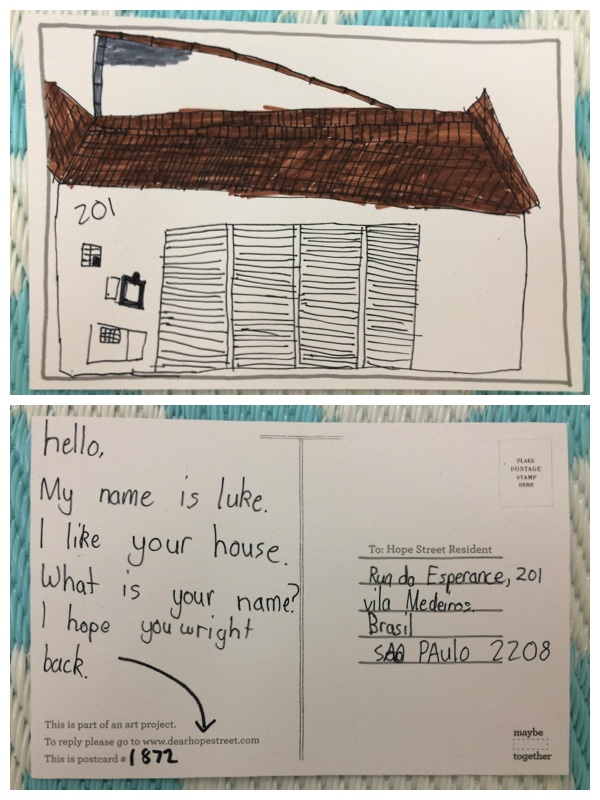 201
hello,
My name is luke.
I like your house.
What is your name?
I hope you wright
back.
This is part of an art project.
To reply please go to www.dearhopestreet.com
This is postcard #1872
PLACE
POSTAGE
STAMP
HERE
To: Hope Street Resident
Rua da Esperance, 201
vila Medeiros.
Brasil
sao PAulo 2208
maybe
together